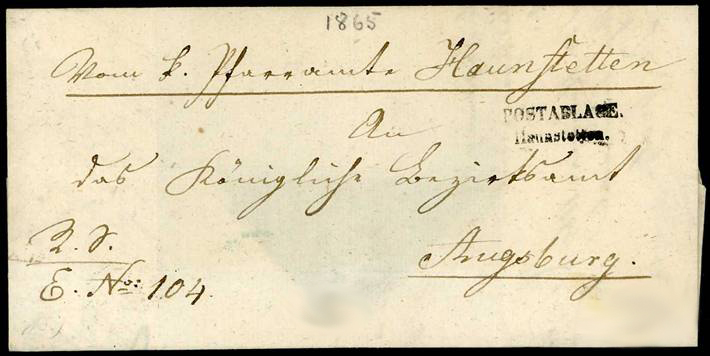 1865
Vom k. Pfarramte Haunstetten
POSTABLAGE.
Haunstetten.
An
das Königliche Bezirksamt
R. S.
Augsburg.
E. No: 104.